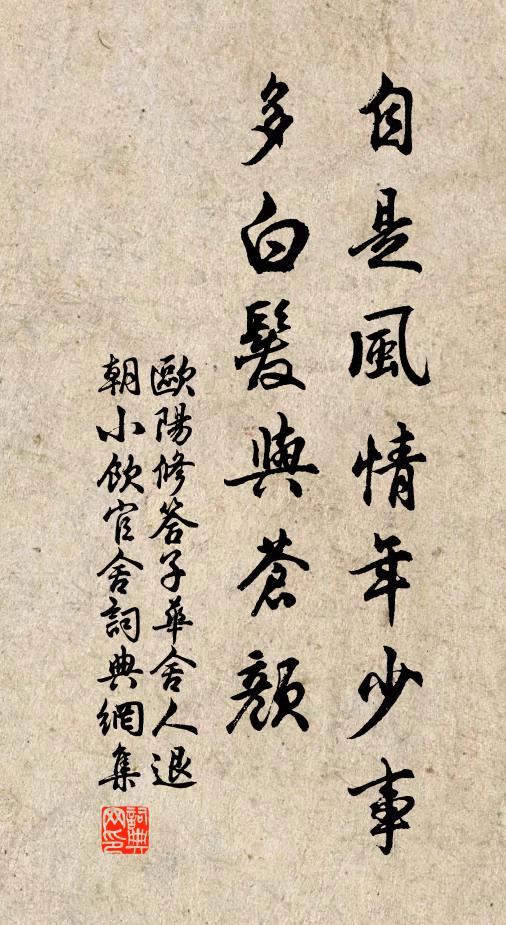 自是風情年少事
多白髮與蒼顏
歐陽修答子華舍人退
朝小飲官舍詞典網集
詞典
网印